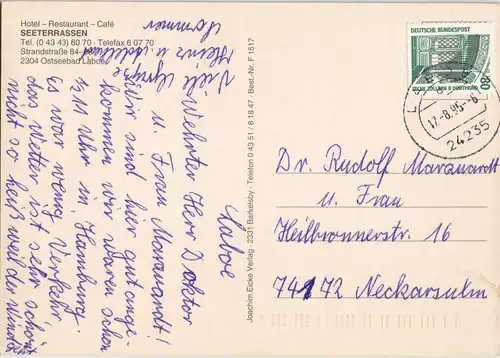 Hotel – Restaurant – Café
SEETERRASSEN
Tel. (0 43 43) 60 70 · Telefax 6 07 70
Strandstraße 84
2304 Ostseebad Laboe
Laboe
Wehrter Herr Doktor
u. Frau Marquardt!
Wir sind hier gut ange-
kommen wir waren schon
½ 11 Uhr in Hamburg
Es war wenig Verkehr
das Wetter ist sehr schön
nicht so heiß weil der Wind
Viele Grüße
Heinz u.
Sommer
Joachim Eicke Verlag · 2331 Barkelsby · Telefon 0 43 51 / 8 18 47 · Best.-Nr. F 1517
DEUTSCHE BUNDESPOST
80
ZECHE ZOLLERN II DORTMUND
17.-8.95.-6
24235
Dr. Rudolf Marquardt
u. Frau
Heilbronnerstr. 16
74172 Neckarsulm